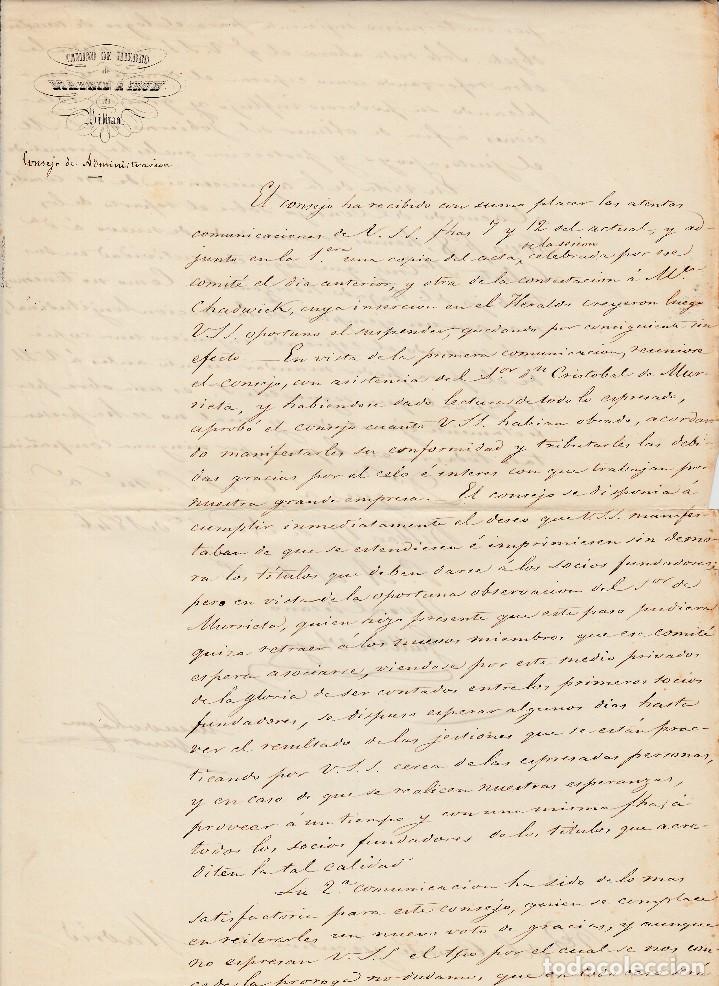 CAMINO DE HIERRO
de
MADRID A IRUN
Bilbao
Consejo de Administracion
El consejo ha recibido con sumo placer las atentas
comunicaciones de V.SS. fhas 7 y 12 del actual, y ad-
junto en la 1.era una copia del acta, de la sesion celebrada por ese
comité el dia anterior, y otra de la contestacion á Mr.
Chadwick, cuya insercion en el Heraldo creyeron luego
V.SS. oportuno el suspender, quedando por consiguiente sin
efecto. — En vista de la primera comunicacion, reuniose
el consejo, con asistencia del Sor. Dn. Cristobal de Mur-
rieta, y habiendose dado lectura de todo lo espresado,
aprobó el consejo cuanto V.SS. habian obrado, acordan
do manifestarles su conformidad y tributarles las debi-
das gracias por el celo é interes con que trabajan por
nuestra grande empresa. — El consejo se disponia á
cumplir inmediatamente el deseo que V.SS. manifes-
taban de que se estendiesen é imprimiesen sin demo-
ra los titulos que deben darse á los socios fundadores;
pero en vista de la oportuna observacion del Sor. de
Murrieta, quien hizo presente que este paso pudiera
quiza retraer á los nuevos miembros que ese comité
espera asociarse, viendose por este medio privados
de la gloria de ser contados entre los primeros socios
fundadores, se dispuso esperar algunos dias hasta
ver el resultado de las jestiones que se están prac-
ticando por V.S.S. cerca de las espresadas personas,
y en caso de que se realicen nuestras esperanzas,
proveer á un tiempo y con una misma fha. á
todos los socios fundadores de los titulos que acre-
diten la tal calidad.
La 2.a comunicacion ha sido de lo mas
satisfactorio para este consejo, quien se complace
en reiterarles un nuevo voto de gracias, y aunque
no espresan V.SS. el tpo por el cual se nos con-
cede la proroga no dudamos, que
todocoleccion.net